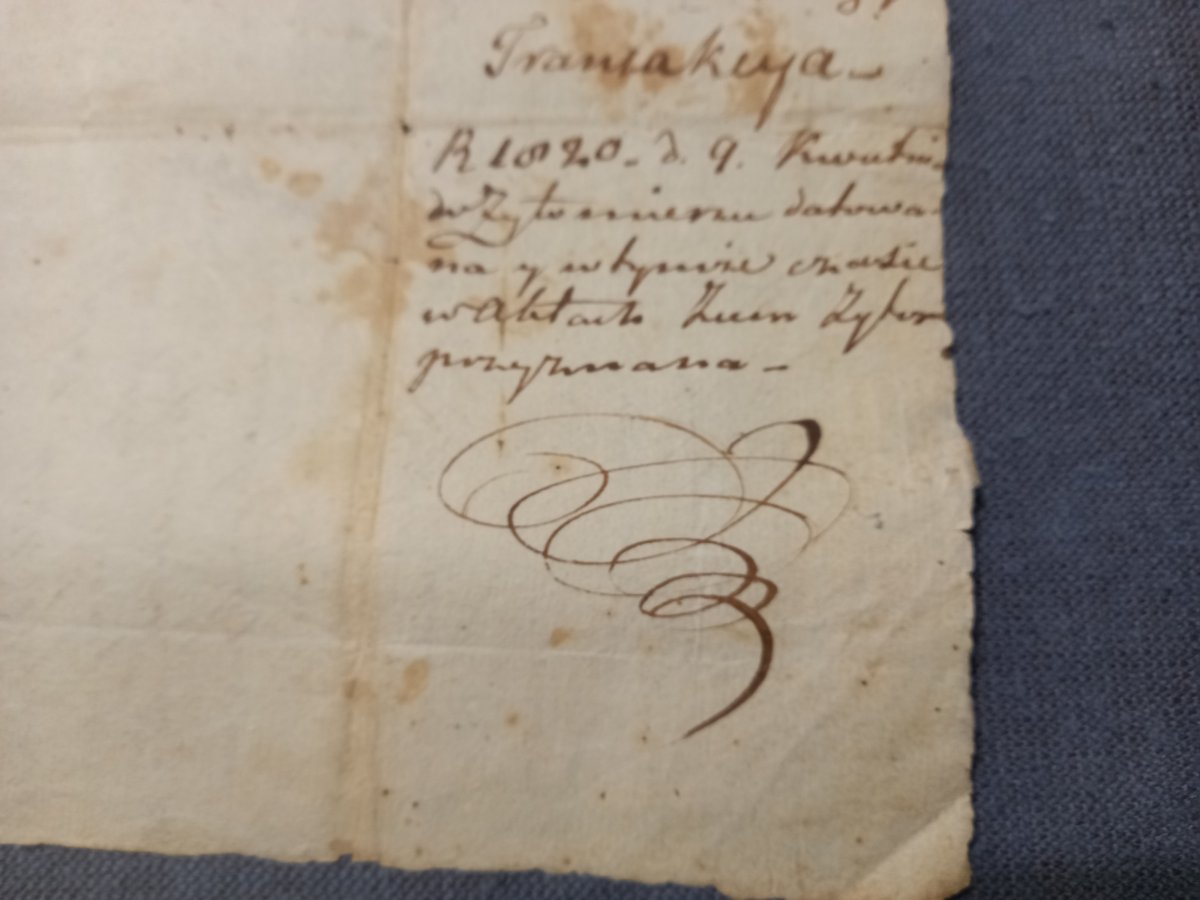 Tranzakcya –
R 1820. d. 9. Kwietn
w Żytomierzu datowa
na y w tymże czasie
w Aktach Ziem Żytom
przyznana –